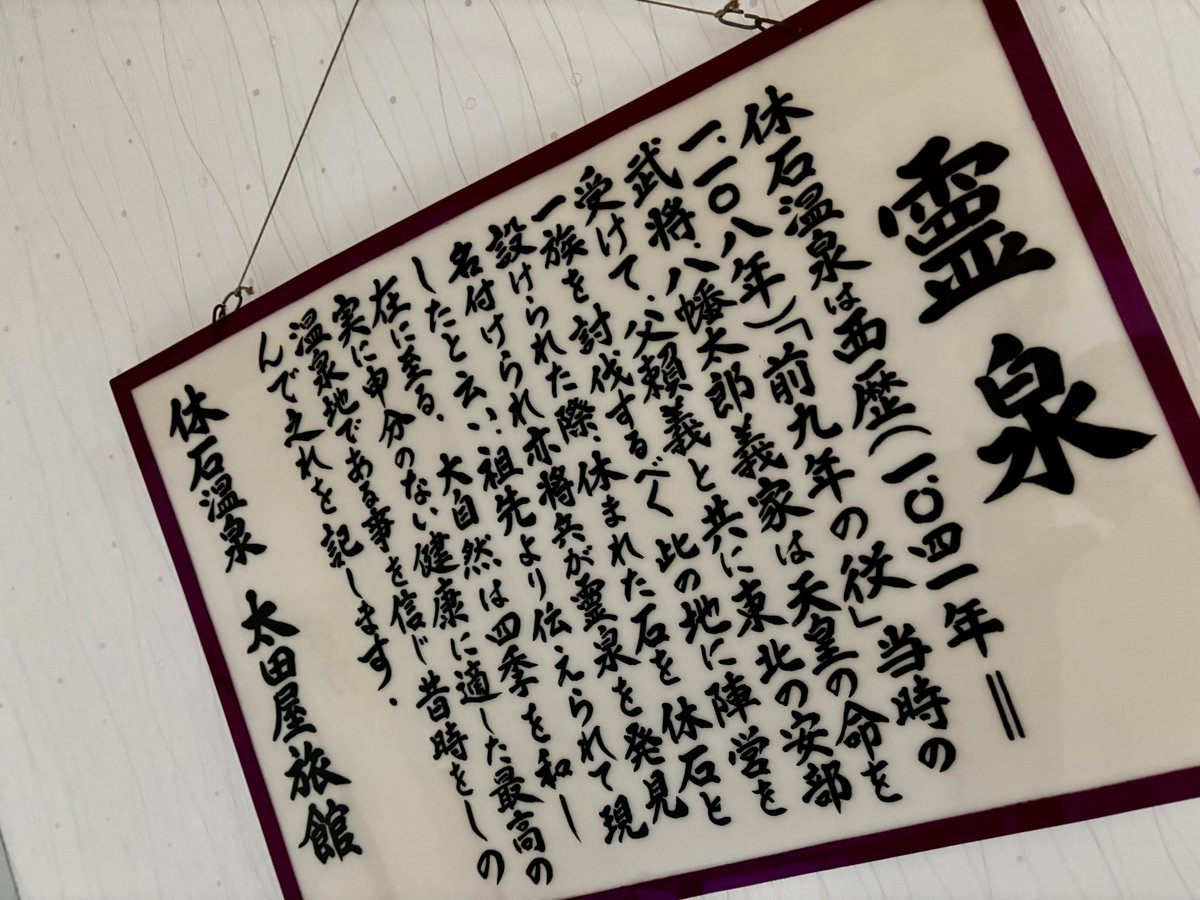 霊泉
休石温泉は西歴(一、〇四一年＝
一、一〇八年)「前九年の役」当時の
武将、八幡太郎義家は天皇の命を
受けて、父頼義と共に東北の安部
一族を討伐するべく此の地に陣営を
設けられた際、休まれた石を休石と
名付けられ亦将兵が霊泉を発見
したと云い、祖先より伝えられて現
在に至る。大自然は四季を和し
実に申分のない健康に適した最高の
温泉地である事を信じ昔時をしの
んで之れを記します。
休石温泉 太田屋旅館